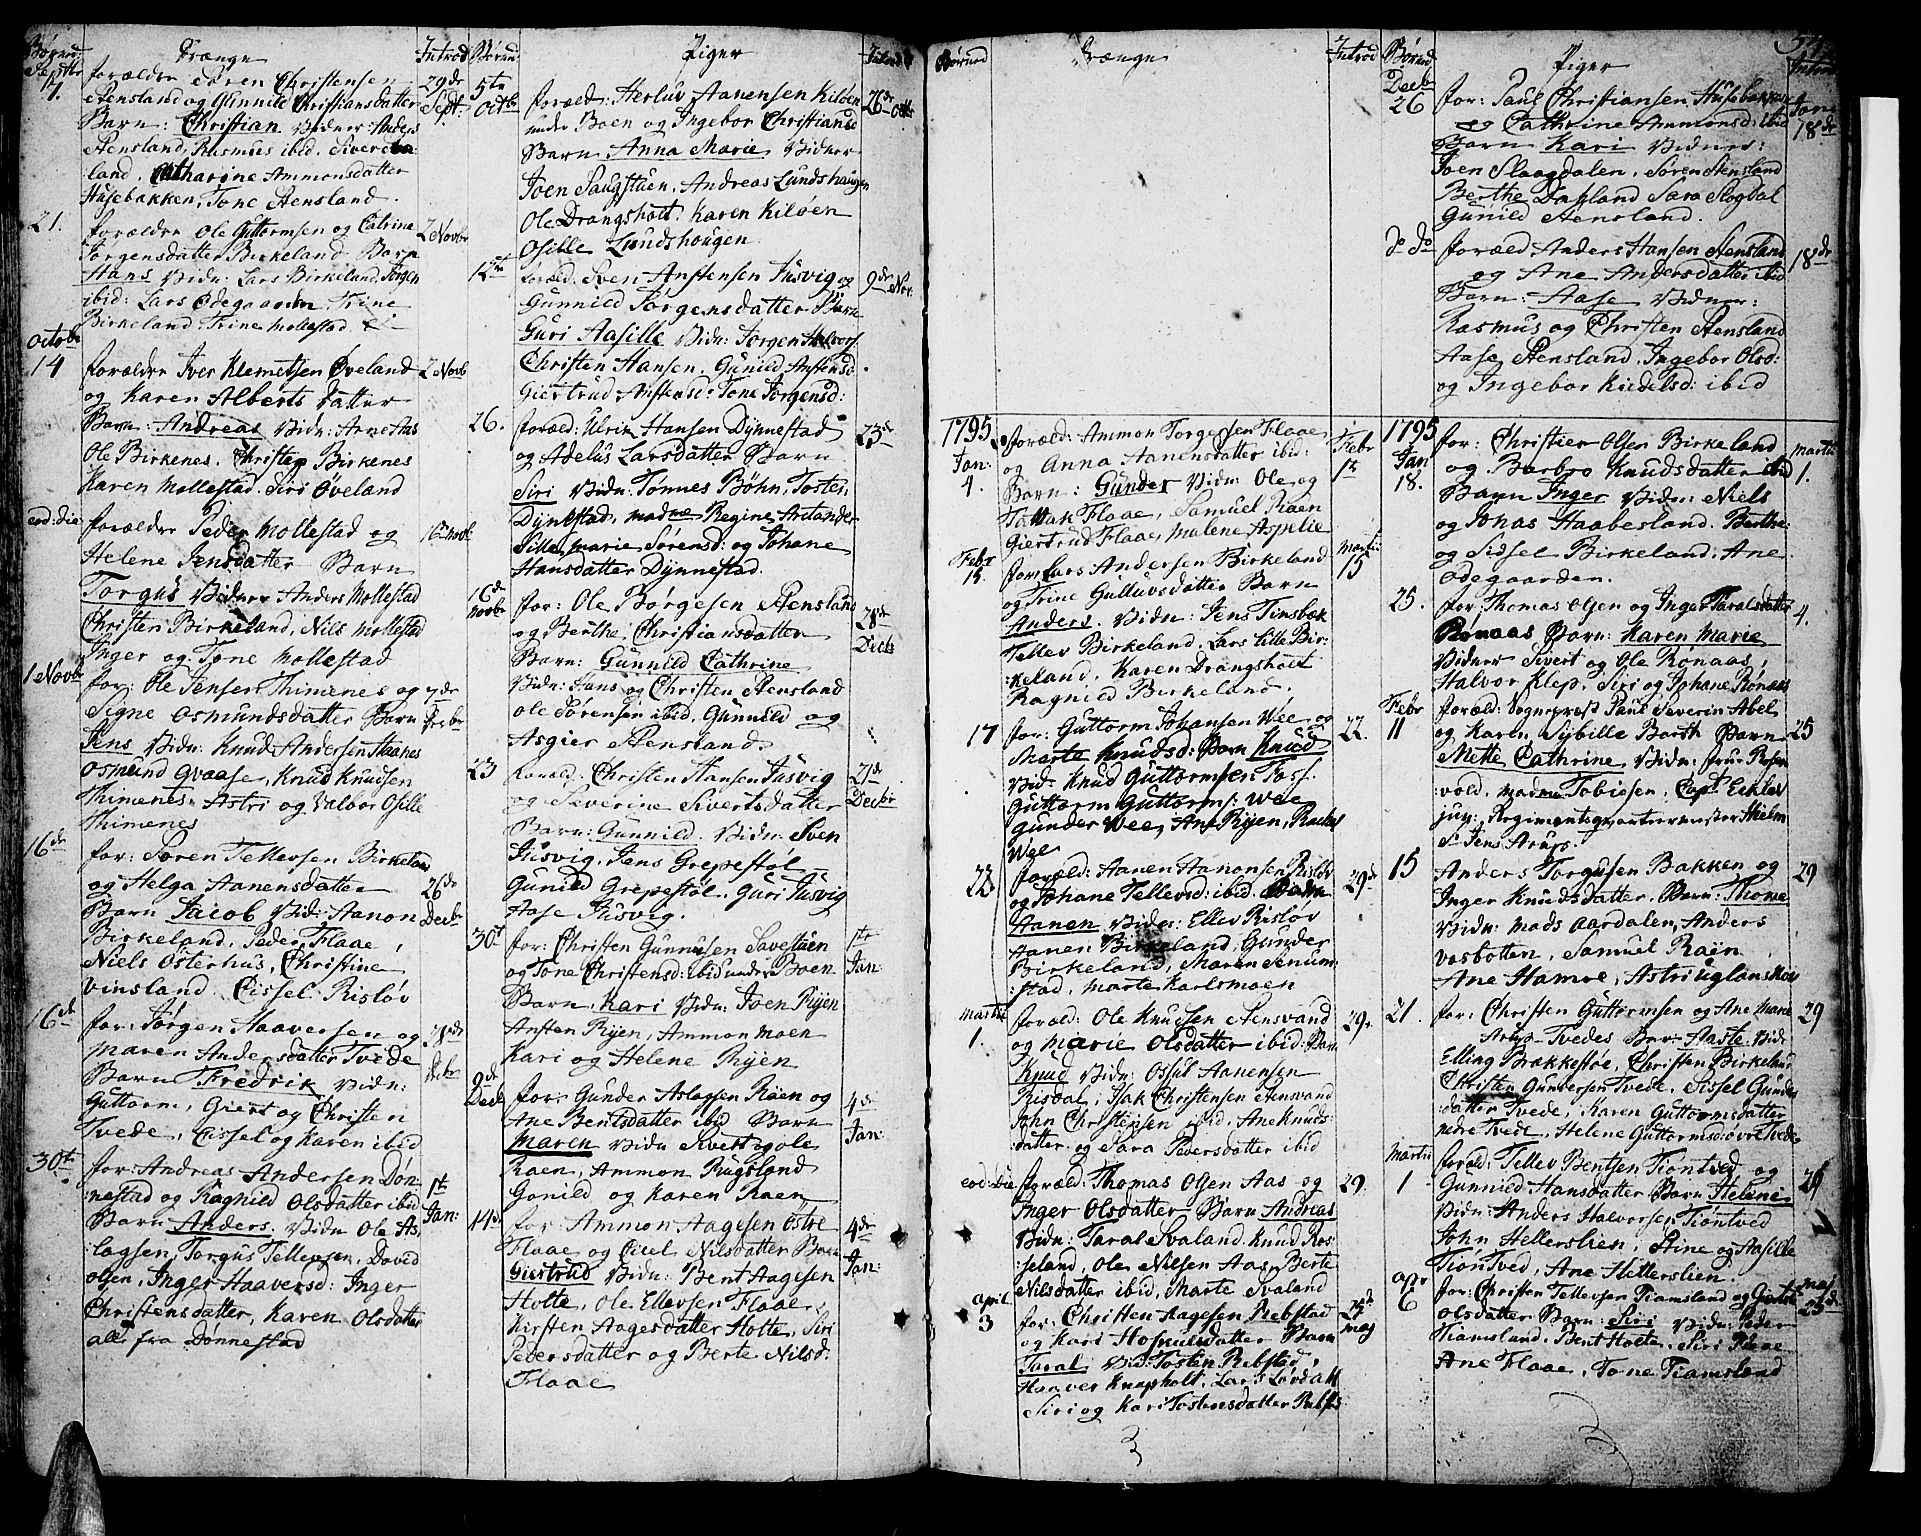 Børned:
Septbr
Drænge
Introd
17.
forældre Søren Christensen
Stensland og Gunnild Christiansdatter
Barn: Christian Vidner Anders
Stensland, Rasmus ibid. Siver
land. Catharine Ammonsdatter
Husebakken, Tone Stensland.
29de
Sept:
21.
forældre Ole Guttormsen og Catrine
Jørgensdatter Birkeland. Barn
Hans Vidn: Lars Birkeland, Jørgen
ibid: Lars Ødegaarden Trine
Birkeland, Trine Mollestad
2 Novbr
Octobr
14
forældre Iver Klemetsen Øveland
og Karen Alberts datter
Barn: Andreas Vidn: Arne Aas
Ole Birkenes, Christen Birkenes
Karen Mollestad. Siri Øveland
2 Novb
eod: die
forældre Peder Mollestad og
Helene Jensdatter Barn
Torgus Vidner Anders Mollestad
Christen Birkeland, Nils Mollestad
Inger og Tone Mollestad
16 Novb
1 Novbr
for: Ole Jensen Thimenes og
Signe Osmundsdatter Barn
Jens Vidn: Knud Andersen Haanes
Osmund Gvaase, Knud Knudsen
Thimenes. Astri og Valbor Osille
Thimenes
7de
16de
for: Søren Tellevsen Birkeland
og Helga Aanensdatter
Barn Jacob Vid: Aanon
Birkeland, Peder Flaae,
Niels Osterhus, Christine
Vinsland. Cissel Risløv
26de
Decbr
16de
for: Jørgen Haaversen og
Maren Andersdatter Tvede
Barn Fredrik Vidn:
Guttorm, Giert og Christen
Tvede, Cissel og Karen ibid
28de
30te
for: Andreas Andersen Døn
nestad og Ragnild Olsdatter ibid
Barn Anders. Vidn Ole As,
lagsen, Torgus Tellevsen, David
Olsen, Inger Haaversd: Inger
Christensdatter, Karen Olsdatter
all fra Dønnestad
1te
Jan:
Børned
Piger
Introd
5te
Octb
foræld: Herluv Aanensen Kiløen
under Boen og Ingebor Christiansd
Barn Anna Marie Vidner
Joen Saugstuen, Andreas Lundshaugen
Ole Drangsholt. Karen Kiløen
Osille Lundshougen
26de
Octb
12te
foræld. Sven Anstensen Jusvig og
Gunnild Jørgensdatter Barn
Guri Aasille Vidn: Jørgen Halvors.
Christen Hansen. Gunild Anstensd
Giertrud Anstensd: Tone Jørgensd:
9de Nov:
26.
foræld: Ulrik Hansen Dynnestad
og Adelus Larsdatter Barn
Siri Vidn: Tønnes Bøhn, Tosten
Dynnestad, Madme Regine
Sille Marie Sørensd: og Johane
Hansdatter Dynnestad.
23de
16de
Novbr
for: Ole Børgesen Stensland
og Berthe Christiansdatter
Barn: Gunnild Cathrine
Vidn: Hans og Christen Stensland
Ole Sørensen ibid, Gunnild og
Asgier Stensland.
28de
Decbr
23
foræld: Christen Hansen Jusvig
og Severine Sivertsdatter
Barn: Gunnild. Vidn: Sven
Jusvig, Jens Grepestøl
Gunild Grepestøl, Guri Jusvig
Aase Jusvig.
21de
Decbr
30t
for: Christen Gunnusen Savestuen
og Tone Christensd: ibid under Boen
Barn, Kari Vidn: Joen Ryen
Ansten Ryen, Ammon Moen
Kari og Helene Ryen
1te
Jan:
9de
Decb
for: Gunder Aslagsen Raen og
Ane Bentsdatter ibid Barn
Maren Vidn Sivert og Ole
Raen, Ammon Rugsland
Gonild og Karen Raen
4de
Jan:
14d
for: Ammon Aagesen Østre
Flaae og Cicel Nilsdatter Barn
Giertrud Vidn: Bent Aagesen
Holte, Ole Ellevsen Flaae,
Kirsten Aagesdatter Holte, Siri
Pedersdatter og Berte Nilsd:
Flaae
4de
Jan:
Børned
Drænge
Introd
1795
Jan:
4.
foræld: Ammon Torgersen Flaae
og Anna Aanensdatter ibid:
Barn: Gunder Vidn: Ole og
Tallak Flaae, Samuel Raen
Giertrud Flaae, Malene Aspelie
Febr
1te
Febr
15.
for: Lars Andersen Birkeland
og Trine Gulluvsdatter Barn
Anders. Vidn: Jens Tinsbek
Tellev Birkeland, Lars Lille Bir:
keland, Karen Drangsholt
Ragnild Birkeland.
Martii
15
17
for: Guttorm Johansen Wee og
Marte Knudsd: Barn Knud
Vid: Knud Guttormsen Foss.
Guttorm Guttorms: Wee
Gunder Wee, Ane Ryen, Rachel
Wee
22.
22
foræld: Aanen Aanonsen Risløv
og Johane Tellevsd: ibid Barn
Aanen Vidn: Ellev Risløv
Aanen Birkeland, Gunder
Birkeland, Maren Senum
stad, Marte Karlsmoen
29de
Martii
1.
foræld: Ole Knudsen Stensvand
og Marie Olsdatter ibid: Barn
Knud Vidn: Ossul Aanensen
Risdal, Isak Christensen Stensvand
John Christensen ibid, Ane Knuds:
datter og Sara Pedersdatter ibid
29.
eod: Die
foræld: Thomas Olsen Aas og
Inger Olsdatter Barn Andreas
Vidn: Taral Svaland. Knud Ros
seland, Ole Nilsen Aas, Berte
Nilsdatter ibid, Marte Svaland
29.
April
3
for: Christen Aagesen Rebstad
og Kari Hofsulsdatter Barn
Taral Vid: Tosten Rebstad,
Haaver Knapholt, Lars Løvdal
Siri og Kari Tostensdatter Rebst
25de
Maj
Børned
Piger
Introd
Decb
26
for: Paul Christiansen Husebakken
og Cathrine Ammonsd: ibid
Barn Kari Vidner:
Joen Slaagdalen, Søren Stensland
Berthe Dapland Sara Slogdal
Gunild Stensland.
Jan:
18de
do do
foræld Anders Hansen Stensland
og Ane Andersdatter ibid
Barn: Aase Vidner:
Rasmus og Christen Stensland
Aase Stensland, Ingebor Olsd:
og Ingebor Kiedelsd: ibid
18de
1795
Jan
18.
for: Christier Olsen Birkeland
og Barbro Knudsdatter ibid
Barn Inger Vidn: Niels
og Jonas Haabesland. Berthe
og Sidsel Birkeland: Ane
Ødegaarden.
Martii
1.
25.
for: Thomas Olsen og Inger Taralsdatter
Rønaas Barn: Karen Marie
Vidner Sivert og Ole Rønaas,
Halvor Klep, Siri og Johane Rønaas
4.
Febr
11
foræld: Sognprest Paul Severin Abel
og Karen Sybille Barth Barn
Mette Cathrine, Vidn: fru Rosen
vold, Madme Tobiesen, Capt Eckle
jun: Regimentsqvarteermester
Sr Jens Arup.
25
15
Anders Torgusen Bakken og
Inger Knudsdatter. Barn: Thone
Vidn: Mads Aardalen, Anders
Vasbotten, Samuel Raen
Ane Hamre, Astri Uglanskov
29
21.
for: Christen Guttormsen og Ane Marie
Arup Tvedes Barn Aaste. Vidn
Elling Brakkestøe, Christen Birkeland
Christen Gundersen Tvede, Sissel Gunders
datter Tvede, Karen Guttormsdatter
nedre Tvede, Helene Guttormsd: øvre Tvede
29
Martii
1
foræld: Tellev Bentsen Tiøntved og
Gunnild Hansdatter Barn Helene
Vidn: Anders Halvorsen Tiøntved
John Hellerslien, Stine og Aasille
Tiøntved, Ane Hellerslien.
29
Apr
6
for: Christen Tellevsen Tiamsland og
Olsdatter Barn: Siri Vidn: Peder
Tiamsland, Bent Holte. Siri
Ane Flaae, Tone Tiamsland
Maj
25de